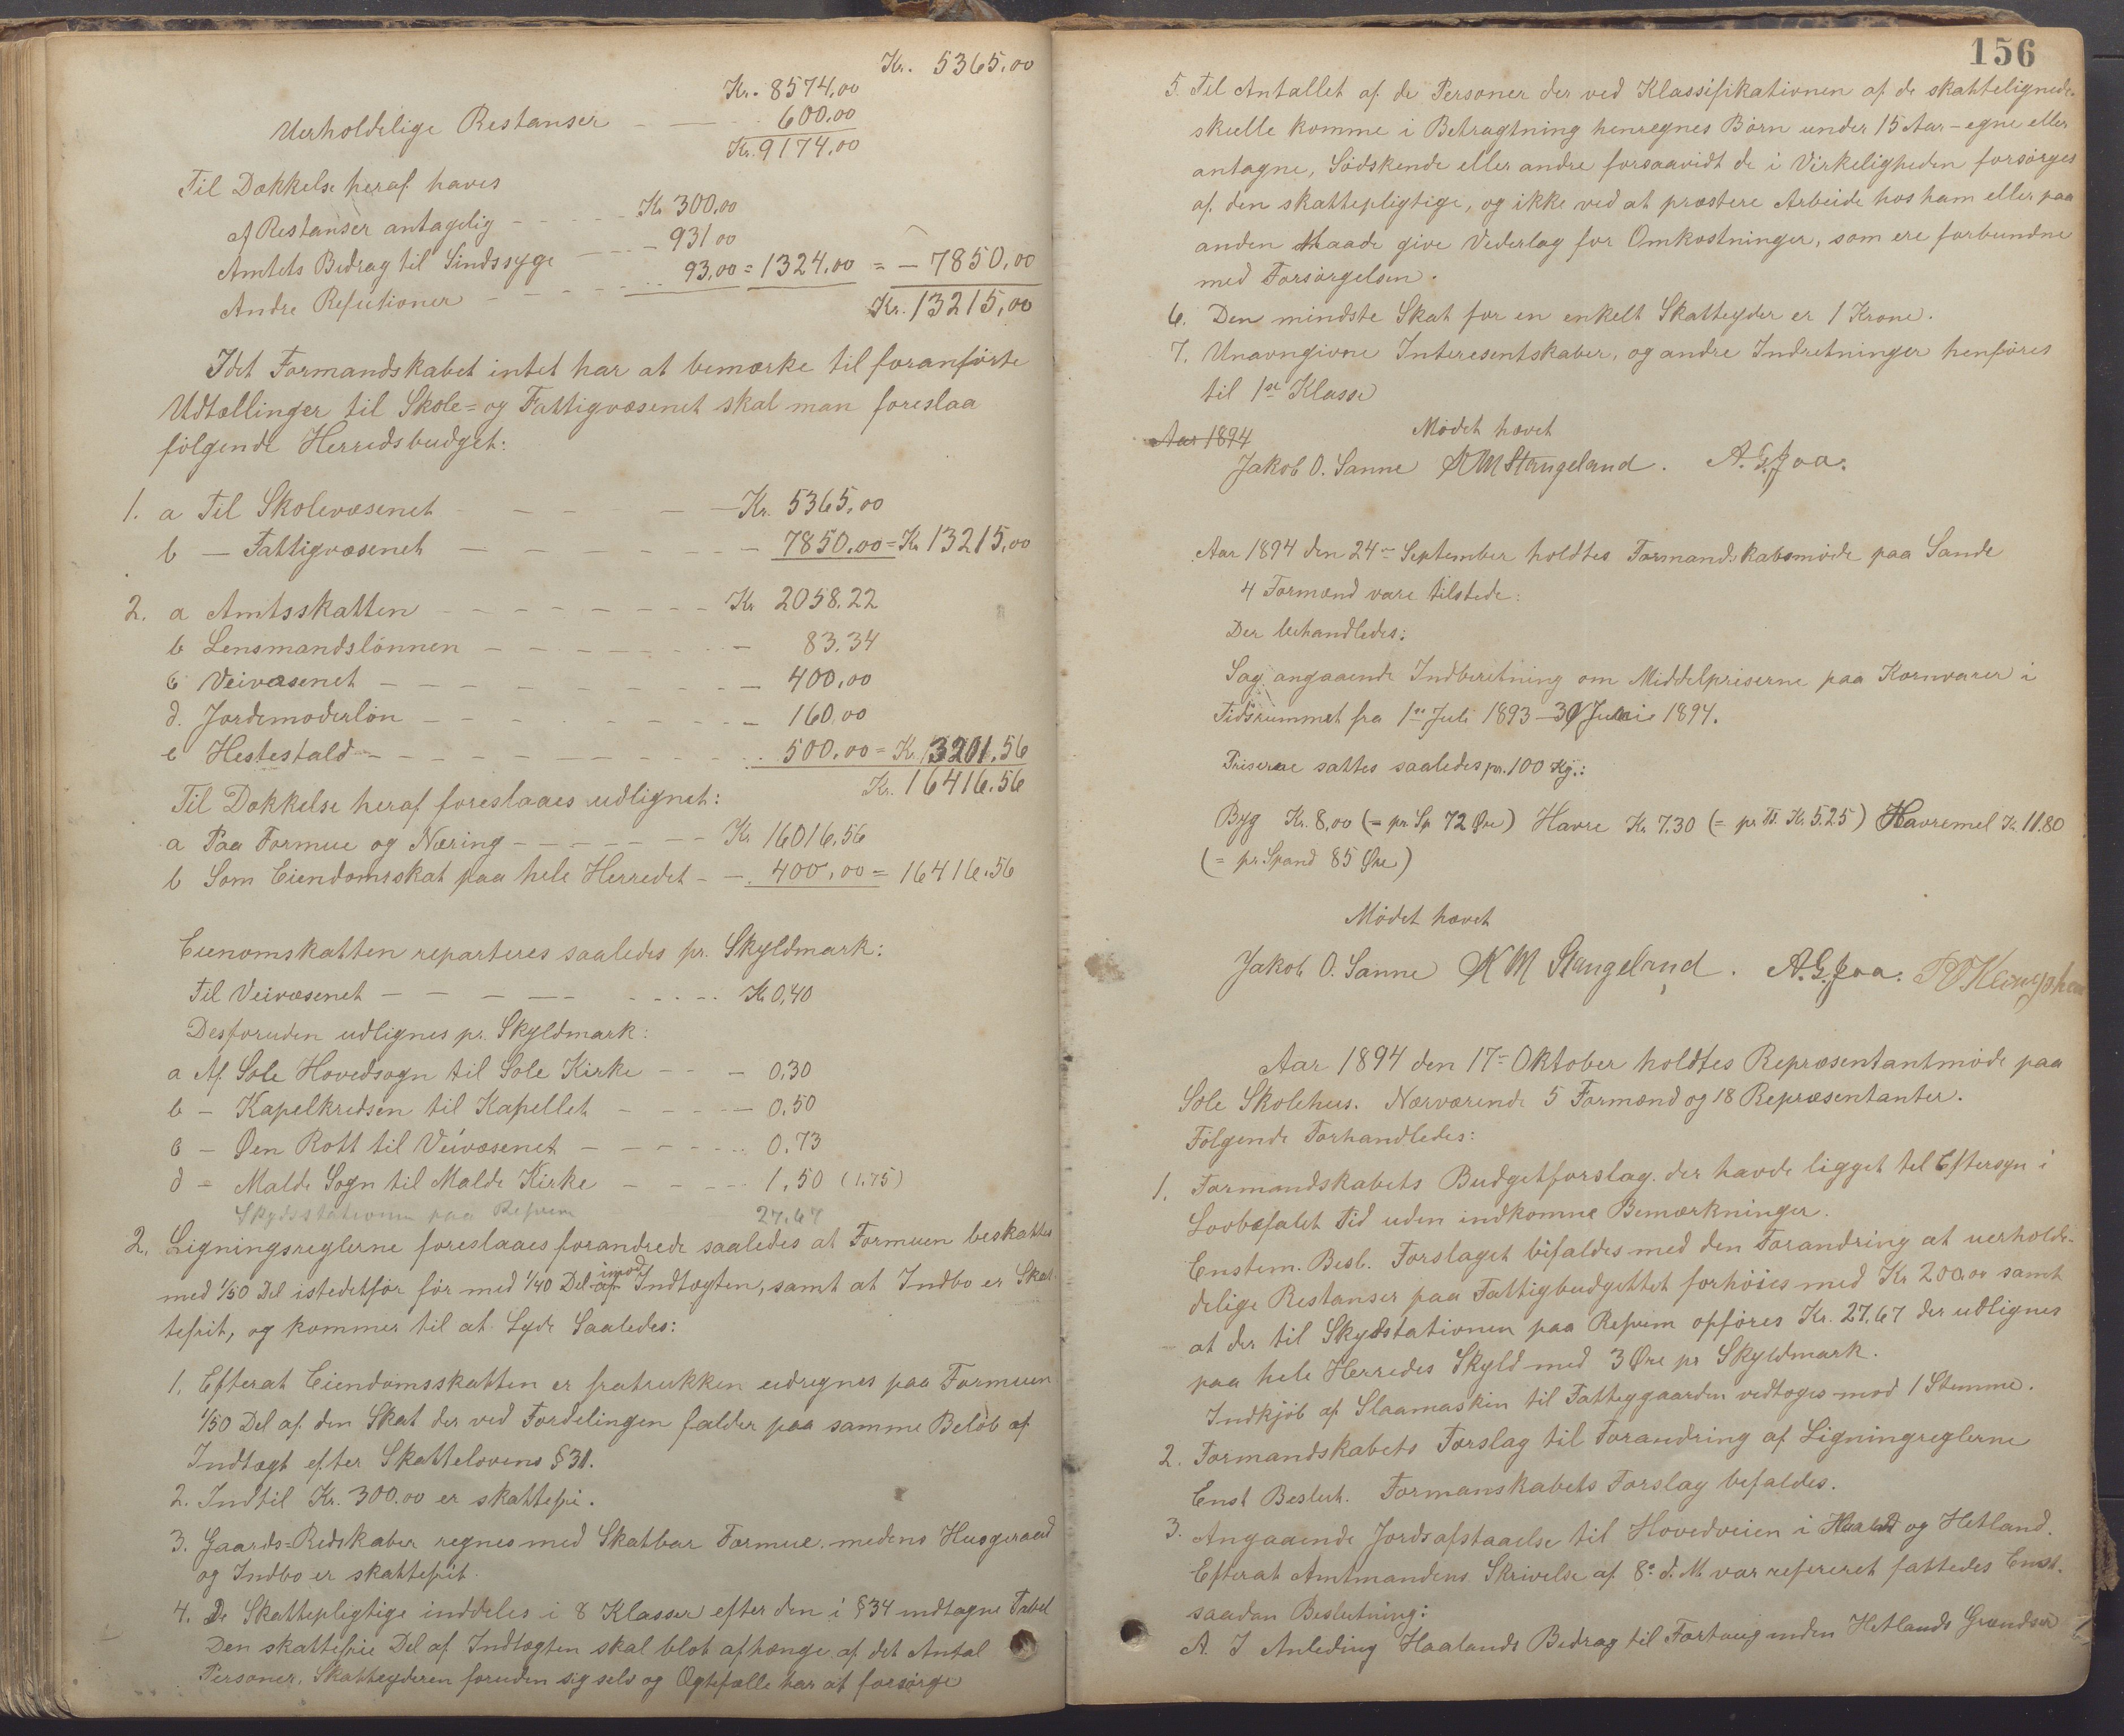 Kr. 5365,00
Kr. 8574,00
Uerholdelige Restanser — — - 600,00
Kr. 9174,00
Til Dækkelse heraf haves
af Restanser antagelig - - - - Kr 300,00
Amtets Bidrag til Sindssyge - - - - 931 00
Andre Refutioner - - - - 93,00 = 1324,00 = - 7850,00
Kr. 13215,00
Idet Formandskabet intet har at bemærke til foranførte
Udtællinger til Skole= og Fattigvæsenet skal man foreslaa
følgende Herredsbudget:
1. a Til Skolevæsenet - - - - - Kr. 5365,00
b — Fattigvæsenet - - - - - - 7850,00 = Kr 13215,00
2. a Amtsskatten - - - - - - - Kr 2058.22
b Lensmandslønnen - - - - - - - 83.34
c Veivæsenet - - - - - - - - 400,00
d. Jordemoderløn - - - - - - - 160,00
e Hestestald - - - - - - - - 500,00 = Kr. 3201.56
Kr. 16416.56
Til Dækkelse heraf foreslaaes udlignet:
a Paa Formue og Næring - - - - - - Kr 16016,56
b Som Eiendomsskat paa hele Herredet - - 400,00 = 16416.56
Eienomskatten reparteres saaledes pr. Skyldmark:
Til Veivæsenet - - - - - - - - Kr 0,40
Desforuden udlignes pr. Skyldmark:
a Af Sole Hovedsogn til Sole Kirke - - - 0,30
b - Kapelkredsen til Kapellet - - - - 0,50
c - Øen Rott til Veivæsenet - - - - - 0.73
d - Malde Sogn til Malde Kirke - - - - 1.50 (1.75)
Skydsstationen paa Refsem 27.67
2. Ligningsreglerne foreslaaes forandrede saaledes at Formuen beskattes
med 1/50 Del istedetfor før med 1/40 Del af imod Indtægten, samt at Indbo er Skat-
tefrit, og kommer til at Lyde Saaledes:
1. Efterat Eiendomsskatten er fratrukken udregnes paa Formuen
1/50 Del af den Skat der ved Fordelingen falder paa samme Beløb af
Indtægt efter Skattelovens § 31.
2. Indtil Kr. 300.00 er skattefri.
3. Gaards=Redskaber regnes med Skatbar Formue, medens Husgeraad
og Indbo er skattefrit.
4. De Skattepligtige inddeles i 8 Klasser efter den i § 34 indtagne Tabel
Den skattefrie Del af Indtægten skal blot afhænge af det Antal
Personer, Skatteyderen foruden sig selv og Ægtefælle har at forsørge
156
5. Til Antallet af de Personer der ved Klassifikationen af de skattelignede
skulle komme i Betragtning henregnes Børn under 15 Aar - egne eller
antagne, Sødskende eller andre forsaavidt de i Virkeligheden forsørges
af den skattepligtige, og ikke ved at præstere Arbeide hos ham eller paa
anden Maade give Vederlag for Omkostninger, som ere forbundne
med Forsørgelsen.
6. Den mindste Skat for en enkelt Skatteyder er 1 Krone.
7. Unavngivne Interesentskaber, og andre Indretninger henføres
til 1ste Klasse
Mødet hævet
Aar 1894
Jakob O. Sanne K M Stangeland. A. G. Joa.
Aar 1894 den 24- September holdtes Formandskabsmøde paa Sande
4 Formænd vare tilstede:
Der behandledes:
Sag angaaende Indberetning om Middelpriserne paa Kornvarer i
Tidsrummet fra 1ste Juli 1893 - 30 Juni 1894.
Priserne sattes saaledes pr. 100 Kg.:
Byg Kr. 8,00 (= pr. Sp 72 Øre) Havre Kr 7.30 (= pr. Td. Kr. 5.25) Havremel Kr. 11.80
(= pr Spand 85 Øre)
Mødet hævet
Jakob O. Sanne K M Stangeland. A. G. Joa.
Aar 1894 den 17- Oktober holdtes Repræsentantmøde paa
Sole Skolehus. Nærværende 5 Formænd og 18 Repræsentanter.
Følgende Forhandledes:
1. Formandskabets Budgetforslag der havde ligget til Eftersyn i
Lovbefalet Tid uden indkomne Bemærkninger.
Enstem. Besl. Forslaget bifaldes med den Forandring at uerholde-
delige Restanser paa Fattigbudgettet forhøies med Kr 200.00 samt
at der til Skydsstationen paa Refsem opføres Kr. 27,67 der udlignes
paa hele Herredes Skyld med 3 Øre pr Skyldmark.
Indkjøb af Slaamaskin til Fattiggaarden vedtoges mod 1 Stemme.
2. Formandskabets Forslag til Forandring af Ligningreglerne
Enst Beslut. Formanskabets Forslag bifaldes.
3. Angaaende Jordsafstaaelse til Hovedveien i Haaland og Hetland.
Efterat Amtmandens Skrivelse af 8de d. M. var refereret fattedes Enst.
saadan Beslutning:
A. I Anleding Haalands Bidrag til Fortoug inden Hetlands Grændser